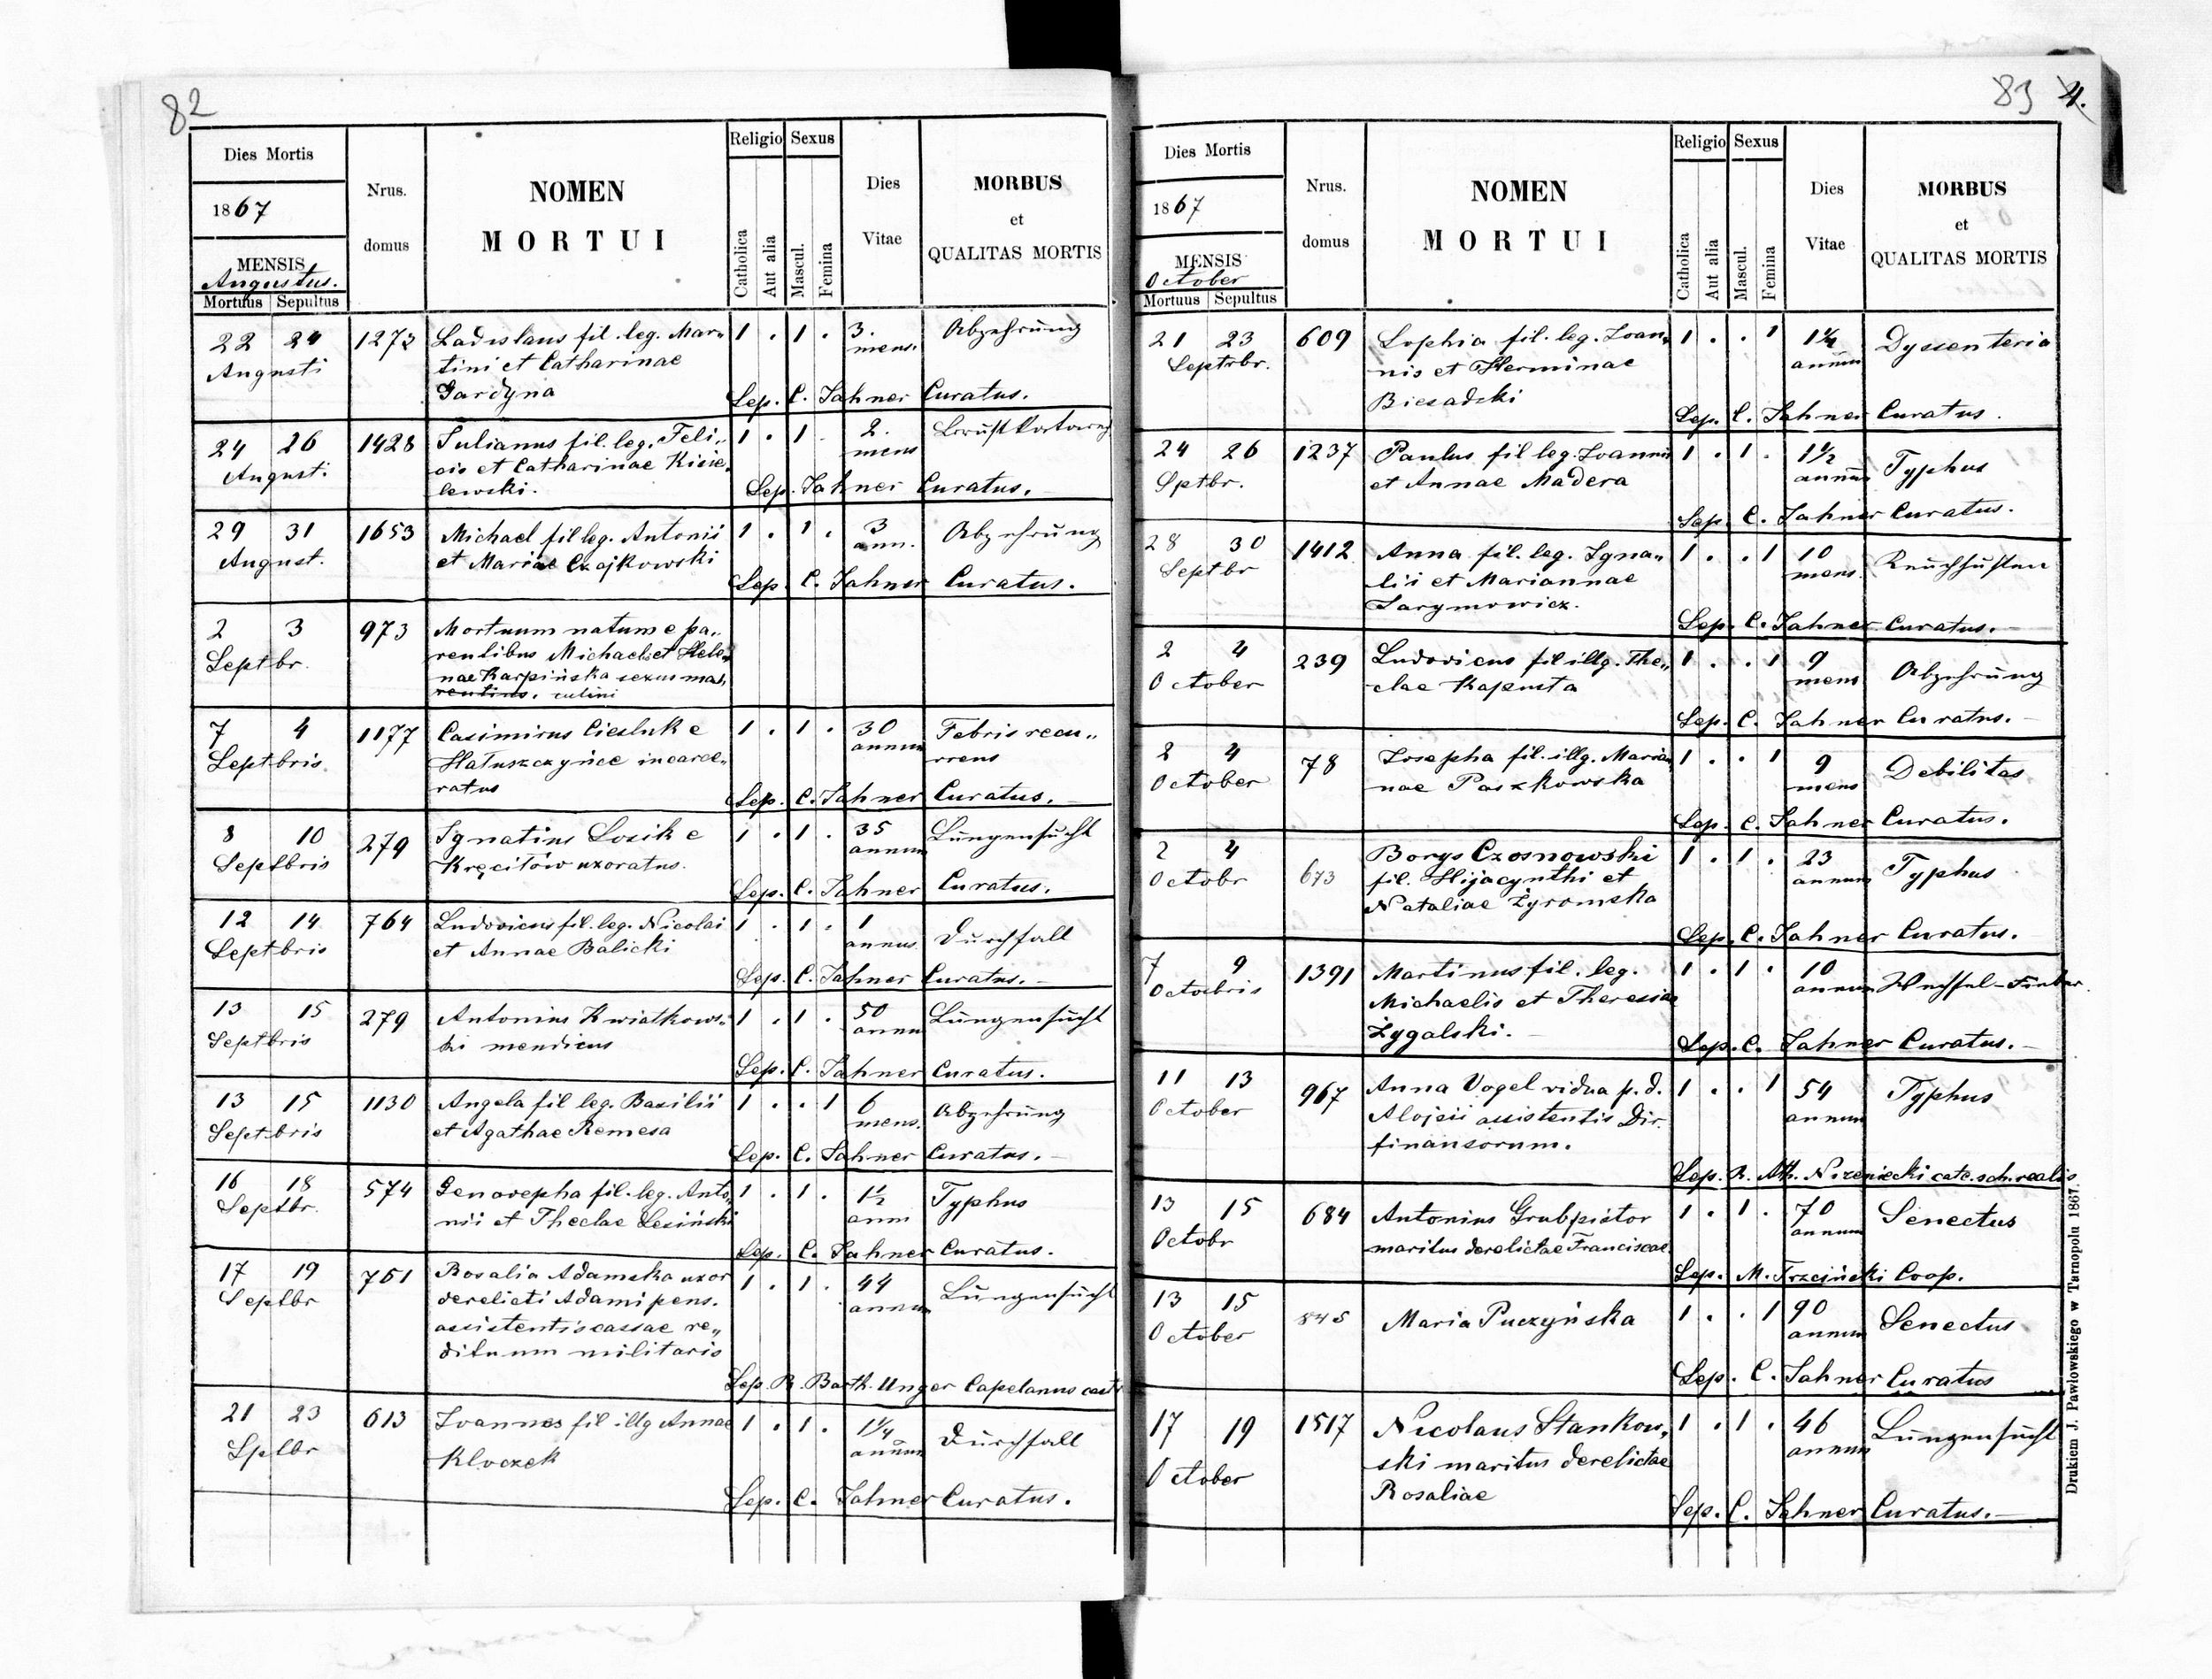 82
Dies Mortis
1867
MENSIS
Augustus.
Mortuus Sepultus
Nrus. domus
NOMEN
MORTUI
Religio Sexus
Catholica Aut alia Mascul. Femina
Dies Vitae
MORBUS
et
QUALITAS MORTIS
22 24 1273 Ladislaus fil. leg. Mar„ 1 . 1 . 3. Abzehrung
Augusti tini et Catharinae mens.
Gardyna Sep. C. Jahner Curatus.
24 26 1428 Julianus fil. leg. Feli„ 1 . 1 . 2.
August. cis et Catharinae Kisie„ mens
lewski. Sep. Jahner Curatus.
29 31 1653 Michael fil leg. Antonii 1 . 1 . 3 Abzehrung
August. et Mariae Czajkowski ann.
Sep. C. Jahner Curatus.
2 3 973 Mortuum natum e pa„
Septbr. rentibus Michael et Hele„
nae Karpińska sexus mas„
culini
7 4 1177 Casimirus Cieśluk e 1 . 1 . 30 Febris recu„
Septbris Hałuszczyńce incarce„ annum rrens
ratus Sep. C. Jahner Curatus.
8 10 279 Ignatius Łosik e 1 . 1 . 35 Lungensucht
Septbris Kręciłów uxoratus. annum
Sep. C. Jahner Curatus.
12 14 764 Ludovicus fil. leg. Nicolai 1 . 1 . 1 Durchfall
Septbris et Annae Balicki annus.
Sep. C. Jahner Curatus.
13 15 279 Antonius Kwiatkows„ 1 . 1 . 50 Lungensucht
Septbris ki mendicus annu
Sep. C. Jahner Curatus.
13 15 1130 Angela fil leg. Basilii 1 . . 1 6 Abzehrung
Septbris et Agathae Remesa mens.
Sep. C. Jahner Curatus.
16 18 574 Genovepha fil. leg. Anto„ 1 . 1 . 1½ Typhus
Septbr. nii et Theclae Lesiński ann
Sep. C. Jahner Curatus.
17 19 751 Rosalia Adamska uxor 1 . 1 . 44 Lungensucht
Septbr derelicti Adami pens. annum
assistentis cassae re„
dituum militaris
Sep. R. Barth. Unger Capelanus cast
21 23 613 Joannes fil illg Annae 1 . 1 . 1¼ Durchfall
Sptbr Kloczek annum
Sep. C. Jahner Curatus.
83 4.
Dies Mortis
1867
MENSIS
October
Mortuus Sepultus
Nrus. domus
NOMEN
MORTUI
Religio Sexus
Catholica Aut alia Mascul. Femina
Dies Vitae
MORBUS
et
QUALITAS MORTIS
21 23 609 Sophia fil. leg. Joan„ 1 . . 1 1¼ Dyssenteria
Septbr. nis et Herminae annum
Biesadzki Sep. C. Jahner Curatus.
24 26 1237 Paulus fil leg. Joannis 1 . 1 . 1½ Typhus
Sptbr. et Annae Madera annum
Sep. C. Jahner Curatus.
28 30 1412 Anna fil. leg. Igna„ 1 . . 1 10 Keuchhusten
Septbr tii et Mariannae mens.
Jarymowicz. Sep. C. Jahner Curatus.
2 4 239 Ludovicus fil illg. The„ 1 . . 1 9 Abzehrung
October clae Kapusta mens
Sep. C. Jahner Curatus.
2 4 78 Josepha fil. illg. Marian„ 1 . . 1 9 Debilitas
October nae Paszkowska mens
Sep. C. Jahner Curatus.
2 4 673 Borys Czosnowski 1 . 1 . 23 Typhus
Octobr fil. Hijacynthi et annum
Nataliae Żyromska
Sep. C. Jahner Curatus.
7 9 1391 Martinus fil. leg. 1 . 1 . 10 Wechsel-Fieber.
Octobris Michaelis et Theresiae annum
Żygalski. Sep. C. Jahner Curatus.
11 13 967 Anna Vogel vidua p. d. 1 . . 1 54 Typhus
October Alojsii assistentis Dir. annum
finansorum.
Sep. R. Ath. Nizeniecki cate. sch. realis
13 15 684 Antonius Grubpistor 1 . 1 . 70 Senectus
Octobr maritus derelictae Franciscae annum
Sep. M. Trzciński Coop.
13 15 845 Maria Puczyńska 1 . . 1 90 Senectus
October annum
Sep. C. Jahner Curatus
17 19 1517 Nicolaus Stankow„ 1 . 1 . 46 Lungensucht
October ski maritus derelictae annum
Rosaliae Sep. C. Jahner Curatus.
Drukiem J. Pawłowskiego w Tarnopolu 1867.